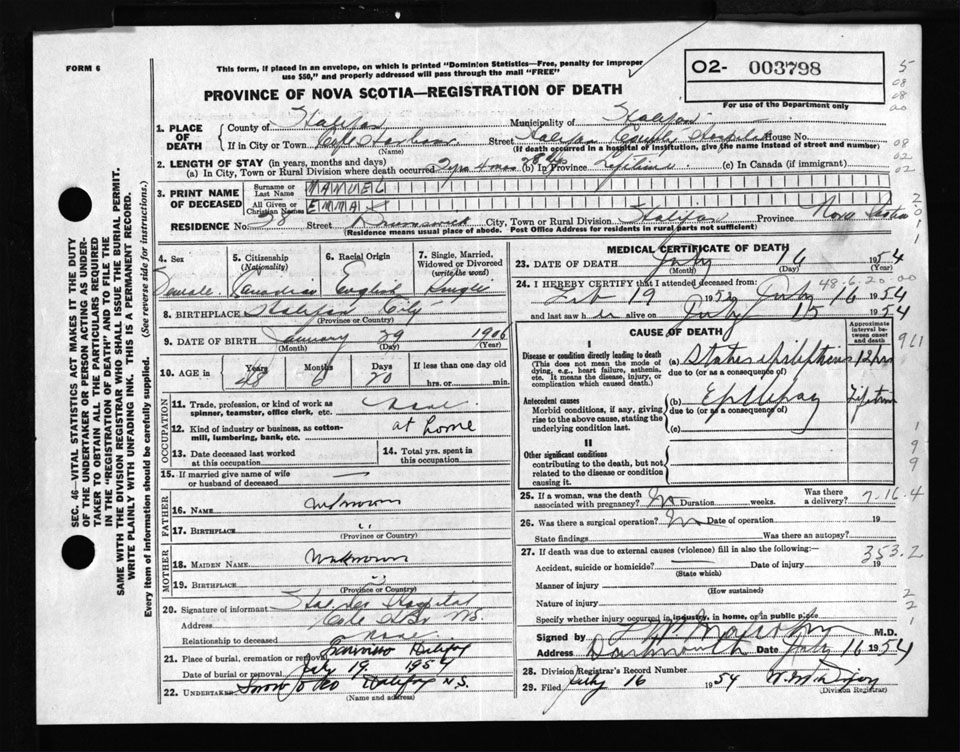 FORM 6
This form, if placed in an envelope, on which is printed "Dominion Statistics—Free, penalty for improper
use $50," and properly addressed will pass through the mail "FREE"
O2- 003798
For use of the Department only
PROVINCE OF NOVA SCOTIA—REGISTRATION OF DEATH
1. PLACE OF DEATH
County of Halifax Municipality of Halifax
If in City or Town Cole Harbour Street Halifax County Hospital House No.
(Name) (If death occurred in a hospital of institution, give the name instead of street and number)
2. LENGTH OF STAY (in years, months and days)
(a) In City, Town or Rural Division where death occurred 2 yrs 4 mos 28 ds (b) In Province Lifetime (c) In Canada (if immigrant)
3. PRINT NAME OF DECEASED
Surname or Last Name MANUEL
All Given or Christian Names EMMA S
RESIDENCE No. 38 Street Brunswick City, Town or Rural Division Halifax Province Nova Scotia
(Residence means usual place of abode. Post Office Address for residents in rural parts not sufficient)
SEC. 46—VITAL STATISTICS ACT MAKES IT THE DUTY
OF THE UNDERTAKER OR PERSON ACTING AS UNDER-
TAKER TO OBTAIN ALL THE PARTICULARS REQUIRED
IN THE "REGISTRATION OF DEATH" AND TO FILE THE
SAME WITH THE DIVISION REGISTRAR WHO SHALL ISSUE THE BURIAL PERMIT.
WRITE PLAINLY WITH UNFADING INK. THIS IS A PERMANENT RECORD.
Every item of information should be carefully supplied. (See reverse side for instructions.)
4. Sex Female
5. Citizenship (Nationality) Canadian
6. Racial Origin English
7. Single, Married, Widowed or Divorced (write the word) Single
8. BIRTHPLACE Halifax City
(Province or Country)
9. DATE OF BIRTH January 29 1906
(Month) (Day) (Year)
10. AGE in Years 48 Months 6 Days 20 If less than one day old
hrs. or min.
OCCUPATION
11. Trade, profession, or kind of work as
spinner, teamster, office clerk, etc. None
12. Kind of industry or business, as cotton-
mill, lumbering, bank, etc. at home
13. Date deceased last worked
at this occupation
14. Total yrs. spent in
this occupation
15. If married give name of wife
or husband of deceased
FATHER
16. NAME unknown
17. BIRTHPLACE "
(Province or Country)
MOTHER
18. MAIDEN NAME Unknown
19. BIRTHPLACE "
(Province or Country)
20. Signature of informant Hospital
Address Cole Hbr NS.
Relationship to deceased None
21. Place of burial, cremation or removal Fairview Halifax
Date of burial or removal July 19 1954
22. UNDERTAKER Snow & Co Halifax N.S.
(Name and address)
MEDICAL CERTIFICATE OF DEATH
23. DATE OF DEATH July 16 1954
(Month) (Day) (Year)
24. I HEREBY CERTIFY that I attended deceased from: 48.6.20
Feb 19 1952 July 16 1954
and last saw h er alive on July 15 1954
CAUSE OF DEATH
Approximate interval between onset and death
I
Disease or condition directly leading to death
(This does not mean the mode of
dying, e.g., heart failure, asthenia,
etc. It means the disease, injury, or
complication which caused death.)
(a) Status epilepticus 12 hrs
due to (or as a consequence of)
Antecedent causes
Morbid conditions, if any, giving
rise to the above cause, stating the
underlying condition last.
(b) Epilepsy Lifetime
due to (or as a consequence of)
(c)
II
Other significant conditions
contributing to the death, but not
related to the disease or condition
causing it.
25. If a woman, was the death
associated with pregnancy? No Duration weeks. Was there a delivery?
7-16.4
26. Was there a surgical operation? No Date of operation 19
State findings Was there an autopsy?
27. If death was due to external causes (violence) fill in also the following:— 353.2
Accident, suicide or homicide? Date of injury 19
(State which)
Manner of injury
(How sustained)
Nature of injury
Specify whether injury occurred in industry, in home, or in public place
Signed by M.D.
Address Dartmouth Date July 16 1954
28. Division Registrar's Record Number
29. Filed July 16 1954
(Division Registrar)